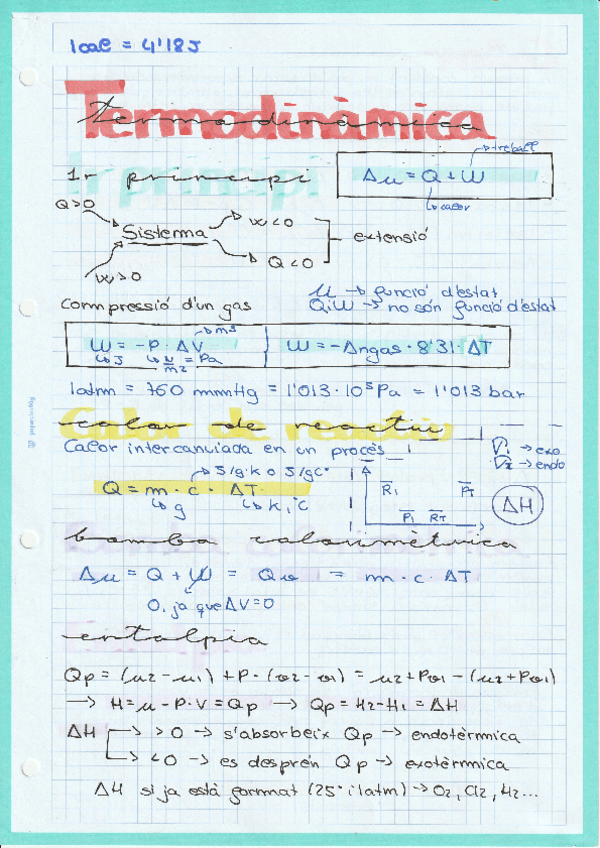 1cal = 4'18J
Termodinàmica
1r principi
ΔU = Q + W
→ treball
↳ calor
Q>0
Sistema
W<0
Q<0
extensió
W>0
Compressió d'un gas
U → funció d'estat
Q i W → no són funció d'estat
W = -P · ΔV
→ m³
↳ J ↳ N/m² = Pa
W = -Δngas · 8'31 · ΔT
1atm = 760 mmHg = 1'013 · 10⁵ Pa = 1'013 bar
Calor de reactiu
Calor intercanviada en un procés
→ J/g·k o J/gC°
Q = m · c · ΔT
↳ g ↳ k, °C
A
R1 PT
P1 RT
V1 → exo
V2 → endo
ΔH
bomba calorimètrica
ΔU = Q + W = Qv = m · c · ΔT
0, ja que ΔV=0
entalpia
Qp = (U2 - U1) + P · (V2 - V1) = U2 + PV1 - (U2 + PV1)
→ H = U - P · V = Qp → Qp = H2 - H1 = ΔH
ΔH → >0 → s'absorbeix Qp → endotèrmica
→ <0 → es desprèn Qp → exotèrmica
ΔH si ja està format (25° i 1atm) → O2, Cl2, H2...